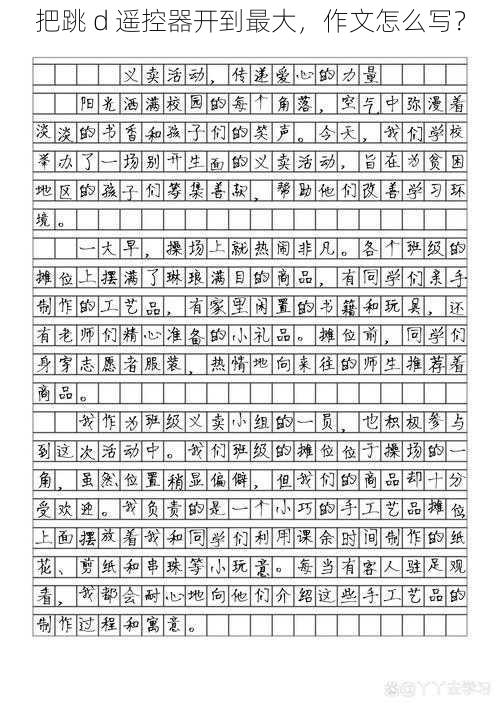 把跳 d 遥控器开到最大，作文怎么写？
义卖活动，传递爱心的力量
阳光洒满校园的每个角落，空气中弥漫着
淡淡的书香和孩子们的笑声。今天，我们学校
举办了一场别开生面的义卖活动，旨在为贫困
地区的孩子们筹集善款，帮助他们改善学习环
境。
一大早，操场上就热闹非凡。各个班级的
摊位上摆满了琳琅满目的商品，有同学们亲手
制作的工艺品，有家里闲置的书籍和玩具，还
有老师们精心准备的小礼品。摊位前，同学们
身穿志愿者服装，热情地向来往的师生推荐着
商品。
我作为班级义卖小组的一员，也积极参与
到这次活动中。我们班级的摊位位于操场的一
角，虽然位置稍显偏僻，但我们的商品却十分
受欢迎。我负责的是一个小巧的手工艺品摊位
上面摆放着我和同学们利用课余时间制作的纸
花、剪纸和串珠等小玩意。每当有客人驻足观
看，我都会耐心地向他们介绍这些手工艺品的
制作过程和寓意。
@丫丫去学习